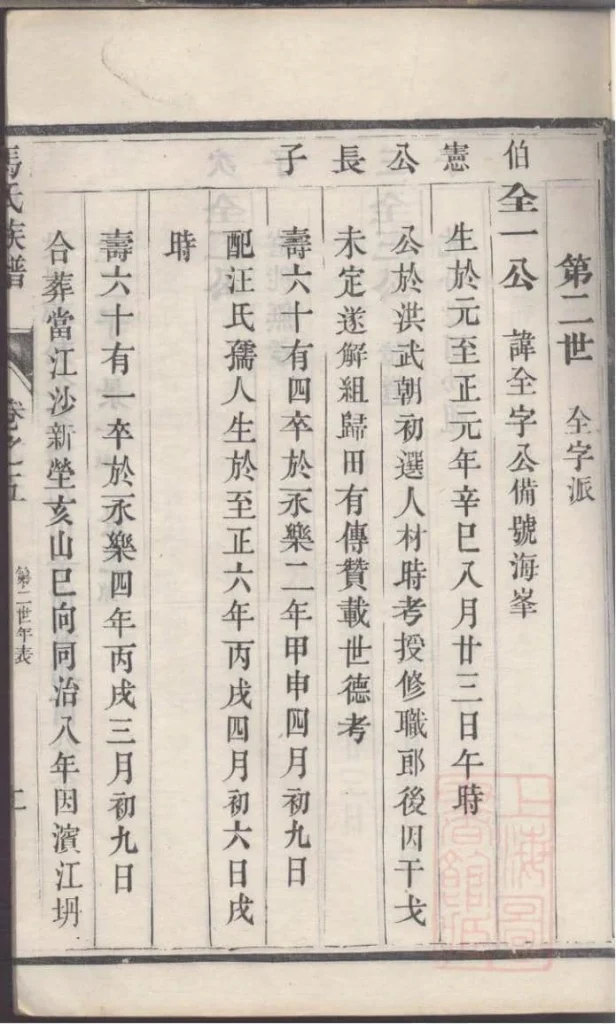 第二世 全字派
伯憲公長子
全一公 諱全字公備號海峯
生於元至正元年辛巳八月廿三日午時
公於洪武朝初選人材時考授修職郎後因干戈
未定遂解組歸田有傳贊載世德考
壽六十有四卒於永樂二年甲申四月初九日
配汪氏孺人生於至正六年丙戌四月初六日戌
時
壽六十有一卒於永樂四年丙戌三月初九日
合葬當江沙新塋亥山巳向同治八年因濱江坍
馬氏族譜
卷之五
第二世年表
上海圖書館